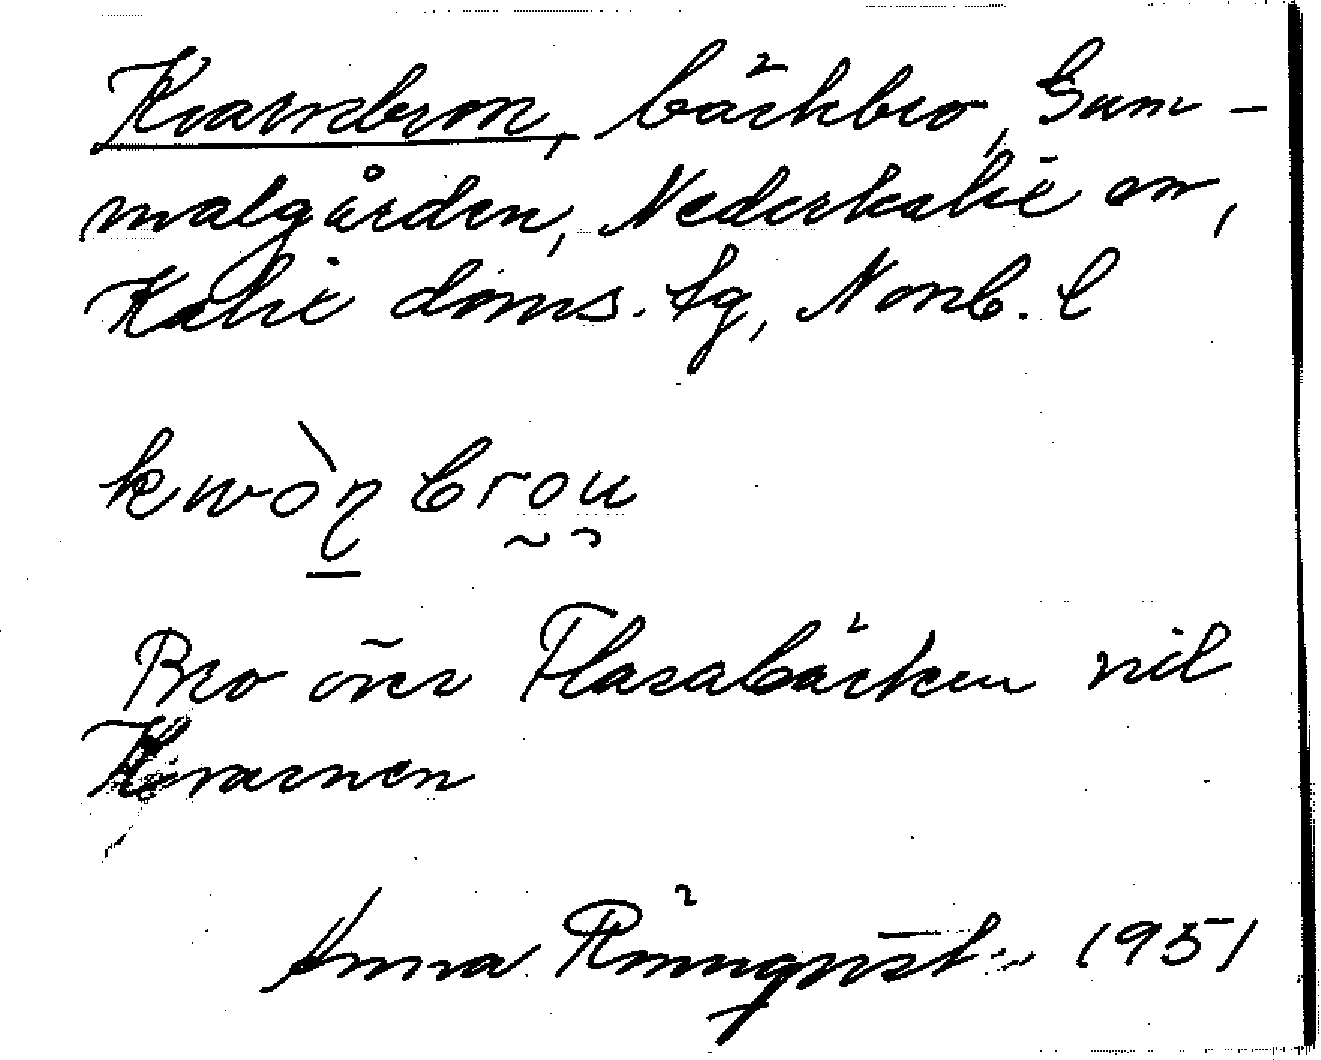 Kvarnbron, bäckbro, Gam-
malgården, Nederkalix sn,
Kalix doms. tg, Norrb. l
kwòɳbrou
Bro över Flasabäcken vid
Kvarnen
Anna Rönnqvist 1951